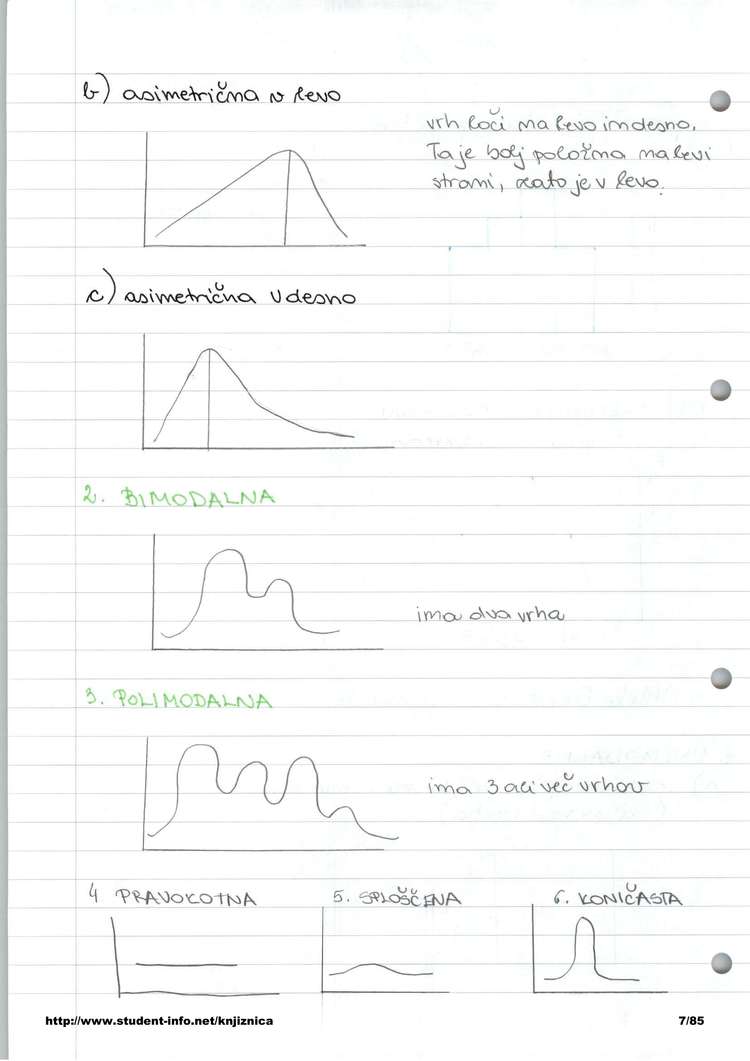 b) asimetrična v levo
vrh loči na levo in desno.
Ta je bolj položna na levi
strani, zato je v levo.
c) asimetrična v desno
2. BIMODALNA
ima dva vrha
3. POLIMODALNA
ima 3 ali več vrhov
4 PRAVOKOTNA
5. SPLOŠČENA
6. KONIČASTA
http://www.student-info.net/knjiznica
7/85